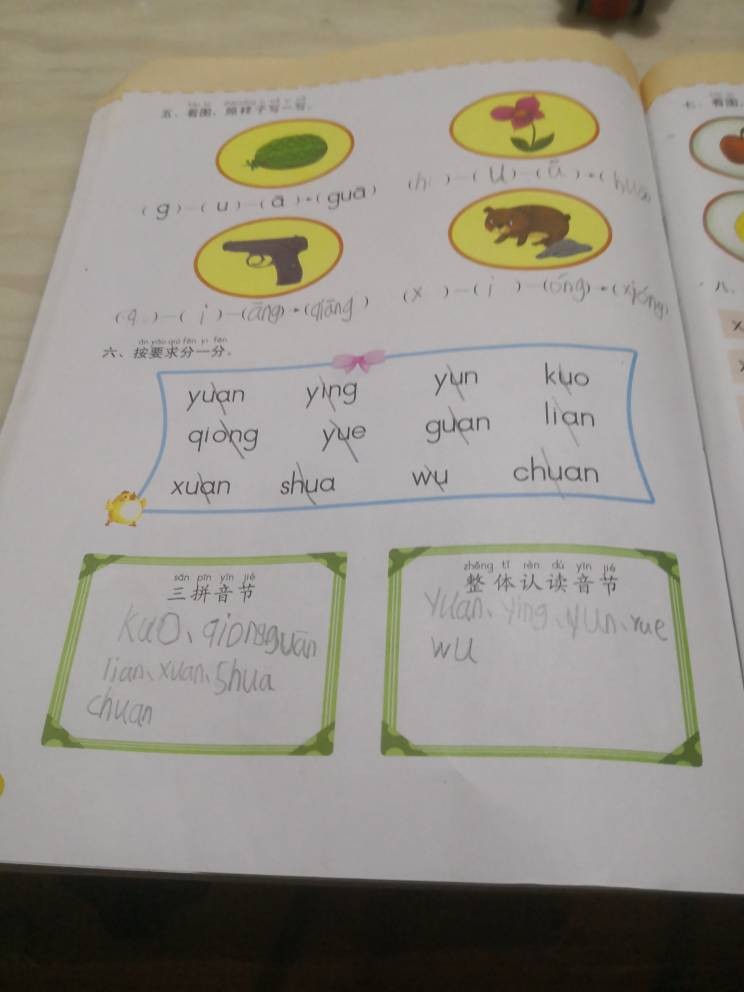 五、看图，照样子写一写。
七、看图
(g)—(u)—(ā)→(guā)
(h)—(u)—(ā)→(huā)
(q)—(i)—(āng)→(qiāng)
(x)—(i)—(óng)→(xióng)
八、
àn yāo qiú fēn yi fēn
六、按要求分一分。
yuan ying yun kuo
qiong yue guan lian
xuan shua wu chuan
sān pīn yīn jié
三拼音节
kuo、qiong guān
lian、xuan、shua
chuan
zhěng tǐ rèn dú yīn jié
整体认读音节
yuan、ying、yun、yue
wu